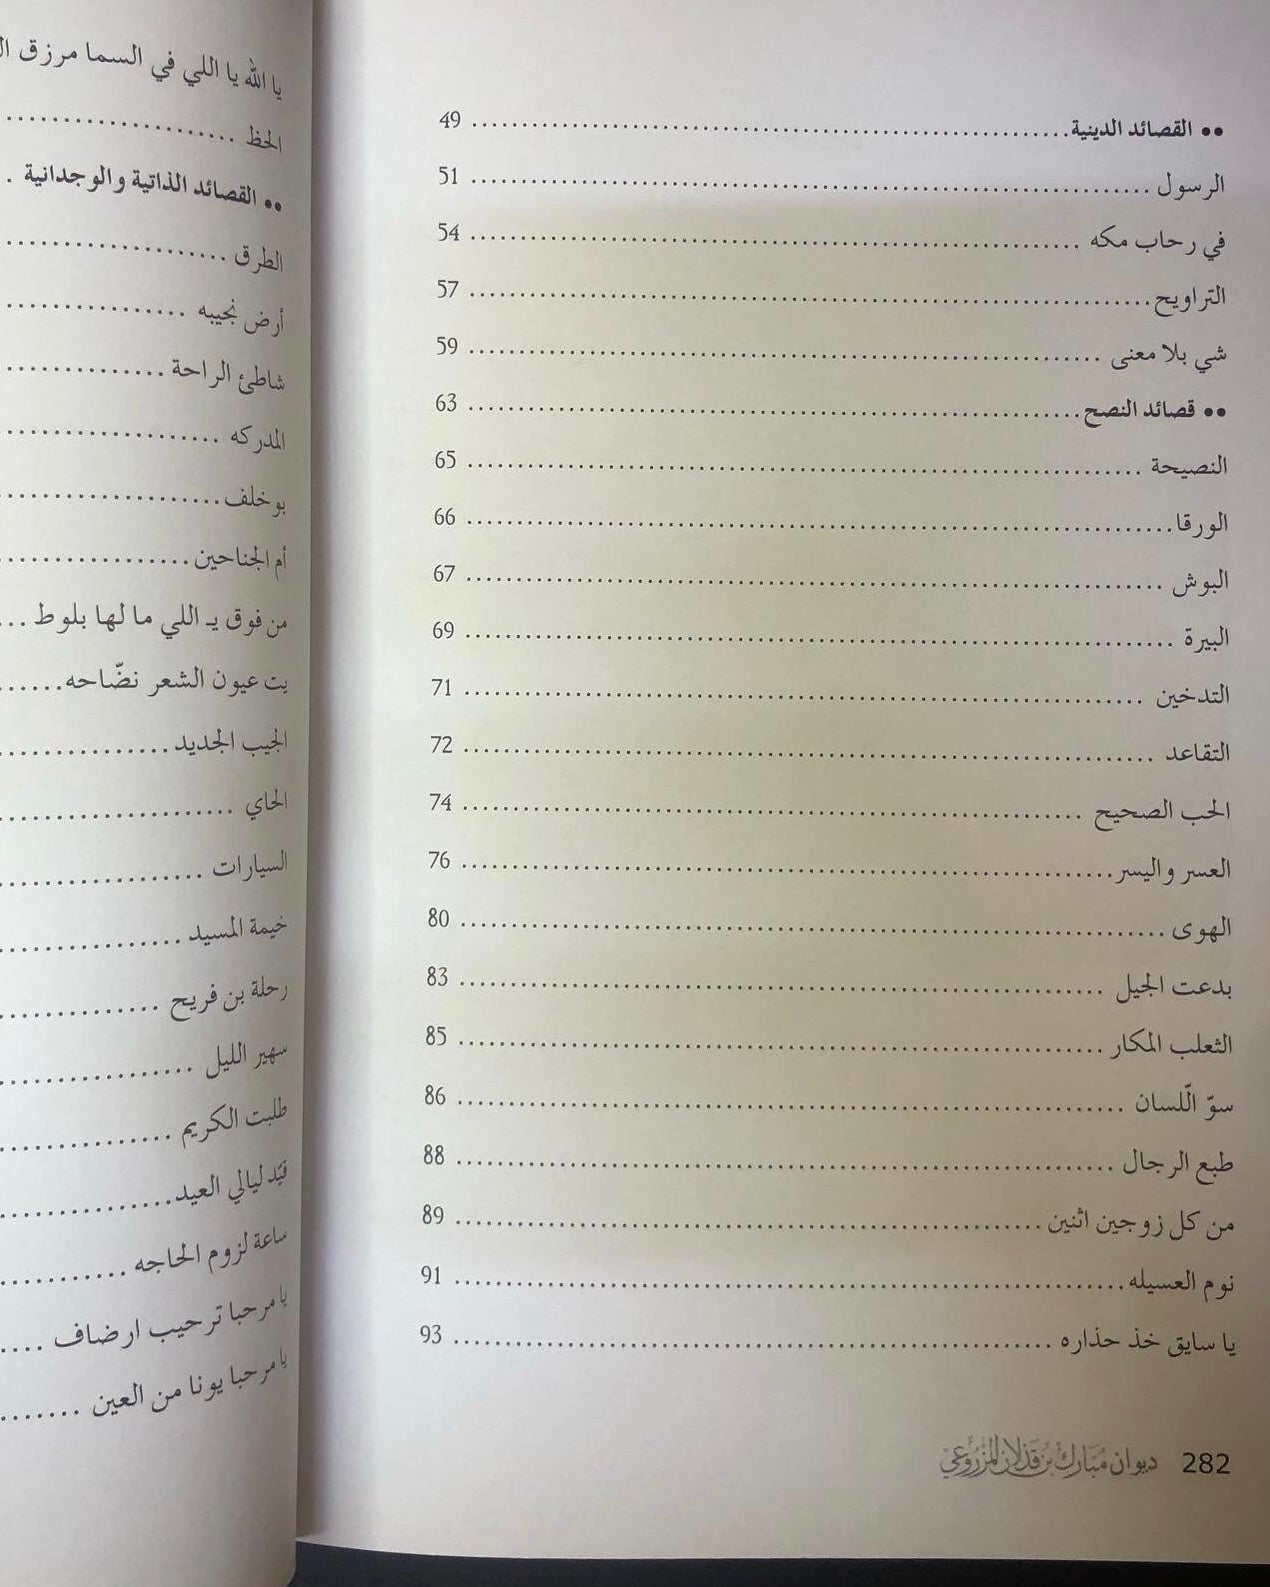 •• القصائد الدينية 49
الرسول 51
في رحاب مكه 54
التراويح 57
شي بلا معنى 59
•• قصائد النصح 63
النصيحة 65
الورقا 66
البوش 67
البيرة 69
التدخين 71
التقاعد 72
الحب الصحيح 74
العسر واليسر 76
الهوى 80
بدعت الجيل 83
الثعلب المكار 85
سوّ الّلسان 86
طبع الرجال 88
من كل زوجين اثنين 89
نوم العسيله 91
يا سايق خذ حذاره 93
282 ديوان مبارك بن قذلان المزروعي
يا الله يا اللي في السما مرزق
الحظ
•• القصائد الذاتية والوجدانية
الطرق
أرض نجيبه
شاطئ الراحة
المدركه
بوخلف
أم الجناحين
من فوق يـ اللي ما لها بلوط
يت عيون الشعر نضّاحه
الجيب الجديد
الحاي
السيارات
خيمة المسيد
رحلة بن فريح
سهير الليل
طلبت الكريم
قيّد ليالي العيد
ساعة لزوم الحاجه
يا مرحبا ترحيب ارضاف
يا مرحبا يونا من العين